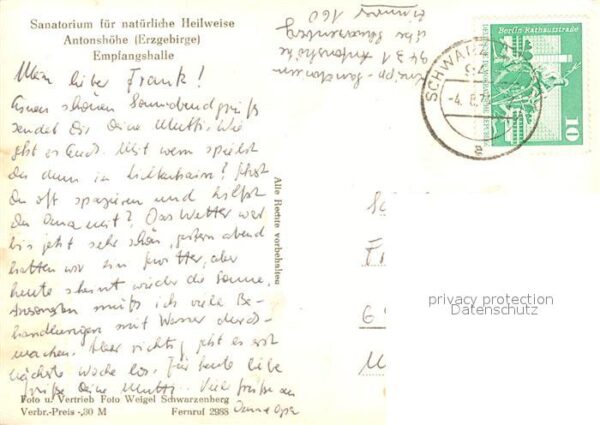 Sanatorium für natürliche Heilweise
Antonshöhe (Erzgebirge)
Empfangshalle
Mein lieber Frank!
Einen schönen Sonnabendgruß
sendet Dir Deine Mutti. Wie
geht es Euch. Mit wem spielst
du denn in Lichtenhain? Gehst
du oft spazieren und hilfst
der Oma mit? Das Wetter war
bis jetzt sehr schön, gestern abend
hatten wir ein Gewitter, aber
heute scheint wieder die Sonne.
Ansonsten muß ich viele Be-
handlungen mit Wasser durch-
machen. Aber richtig geht es erst
nächste Woche los. Für heute liebe
Grüße Deine Mutti. Viele Grüße an
Oma u. Opa
Foto u. Vertrieb Foto Weigel Schwarzenberg
Verbr.-Preis -,30 M Fernruf 2988
Alle Rechte vorbehalten
Kneipp-Sanatorium
9431 Antonshöhe
über Schwarzenberg
Zimmer 160
SCHWARZ
94
-4. 8. 7
a
Berlin-Rathausstraße
10
privacy protection
Datenschutz